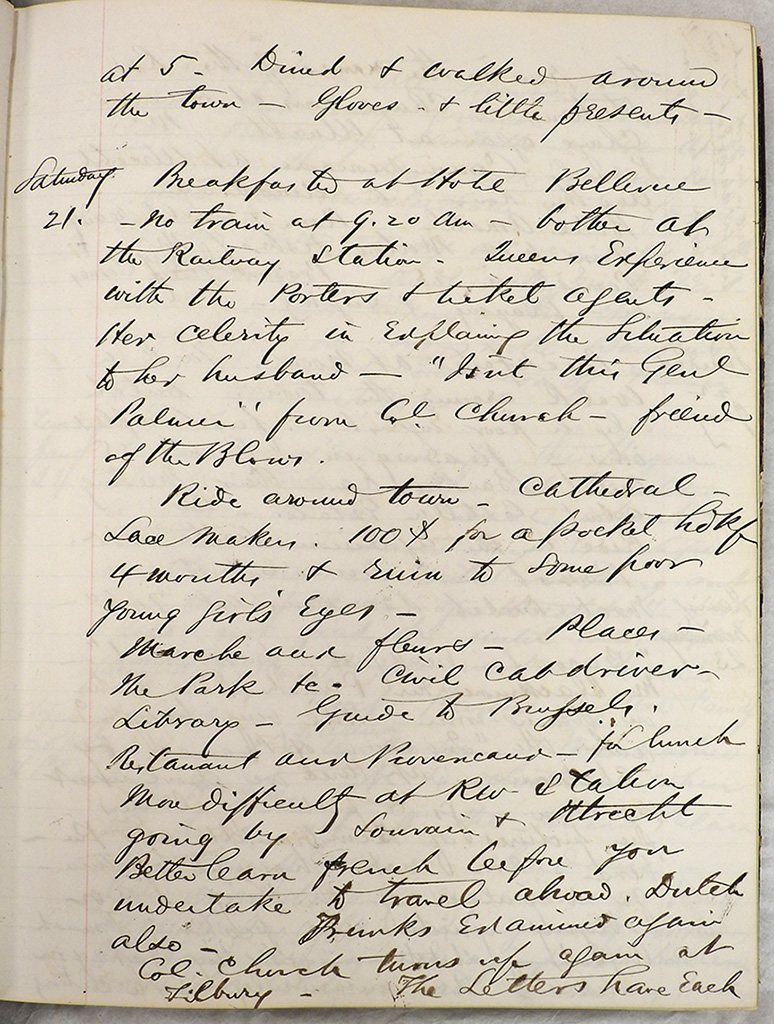 at 5 - Dined & walked around
the town - Gloves - & little presents -
Saturday Breakfasted at Hotel Bellevue
21. - no train at 9.20 am - bother at
the Railway Station - Queens Experience
with the Porters & ticket agents -
Her celerity in Explaining the Situation
to her husband - "Isnt this Genl
Palmer" from Col. Church - friend
of the Blows.
Ride around town - Cathedral -
Lace Makers. 100$ for a pocket hdkf
4 months & ruin to some poor
young girls Eyes -
Marche aux fleurs - Places -
The Park &c. Civil Cabdriver -
Library - Guide to Brussels.
Restaurant aux Provencaux - for lunch
More difficulty at RW Station
going by Louvain & Utrecht
Better learn french before you
undertake to travel abroad. Dutch
also - Trunks Examined again
Col. Church turns up again at
Tilbury - The Letters have Each